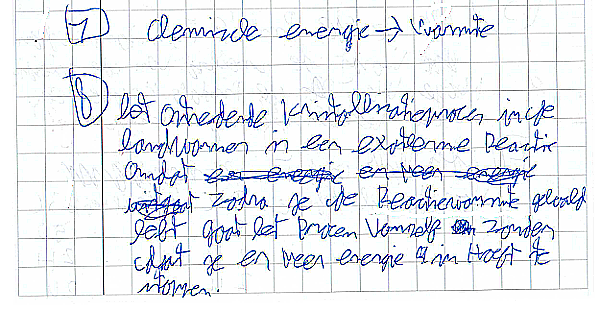 7 Chemische energie → Warmte
8 het optredende kristallisatieproces in de
handwarmer is een exotherme Reactie
omdat er energie er veen energie
zodra je de Reactiewarmte gehaald
hebt gaat het Proces vanself zonder
dat je er veen energie in Hoeft te
stoppen.